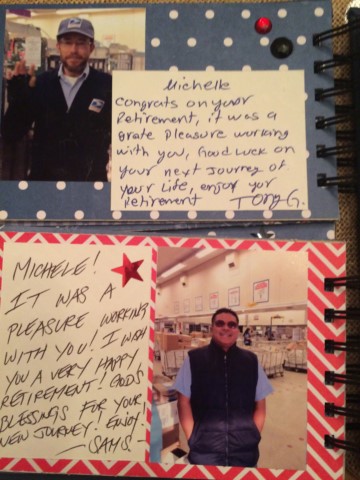 Michelle
Congrats on your
Retirement, it was a
grate pleasure working
with you, Good Luck on
your next Journey of
your Life, enjoy your
Retirement Tony G.
MICHELE!
IT WAS A
PLEASURE WORKING
WITH YOU! I WISH
YOU A VERY HAPPY
RETIREMENT! GODS
BLESSINGS FOR YOUR
NEW JOURNEY! ENJOY!